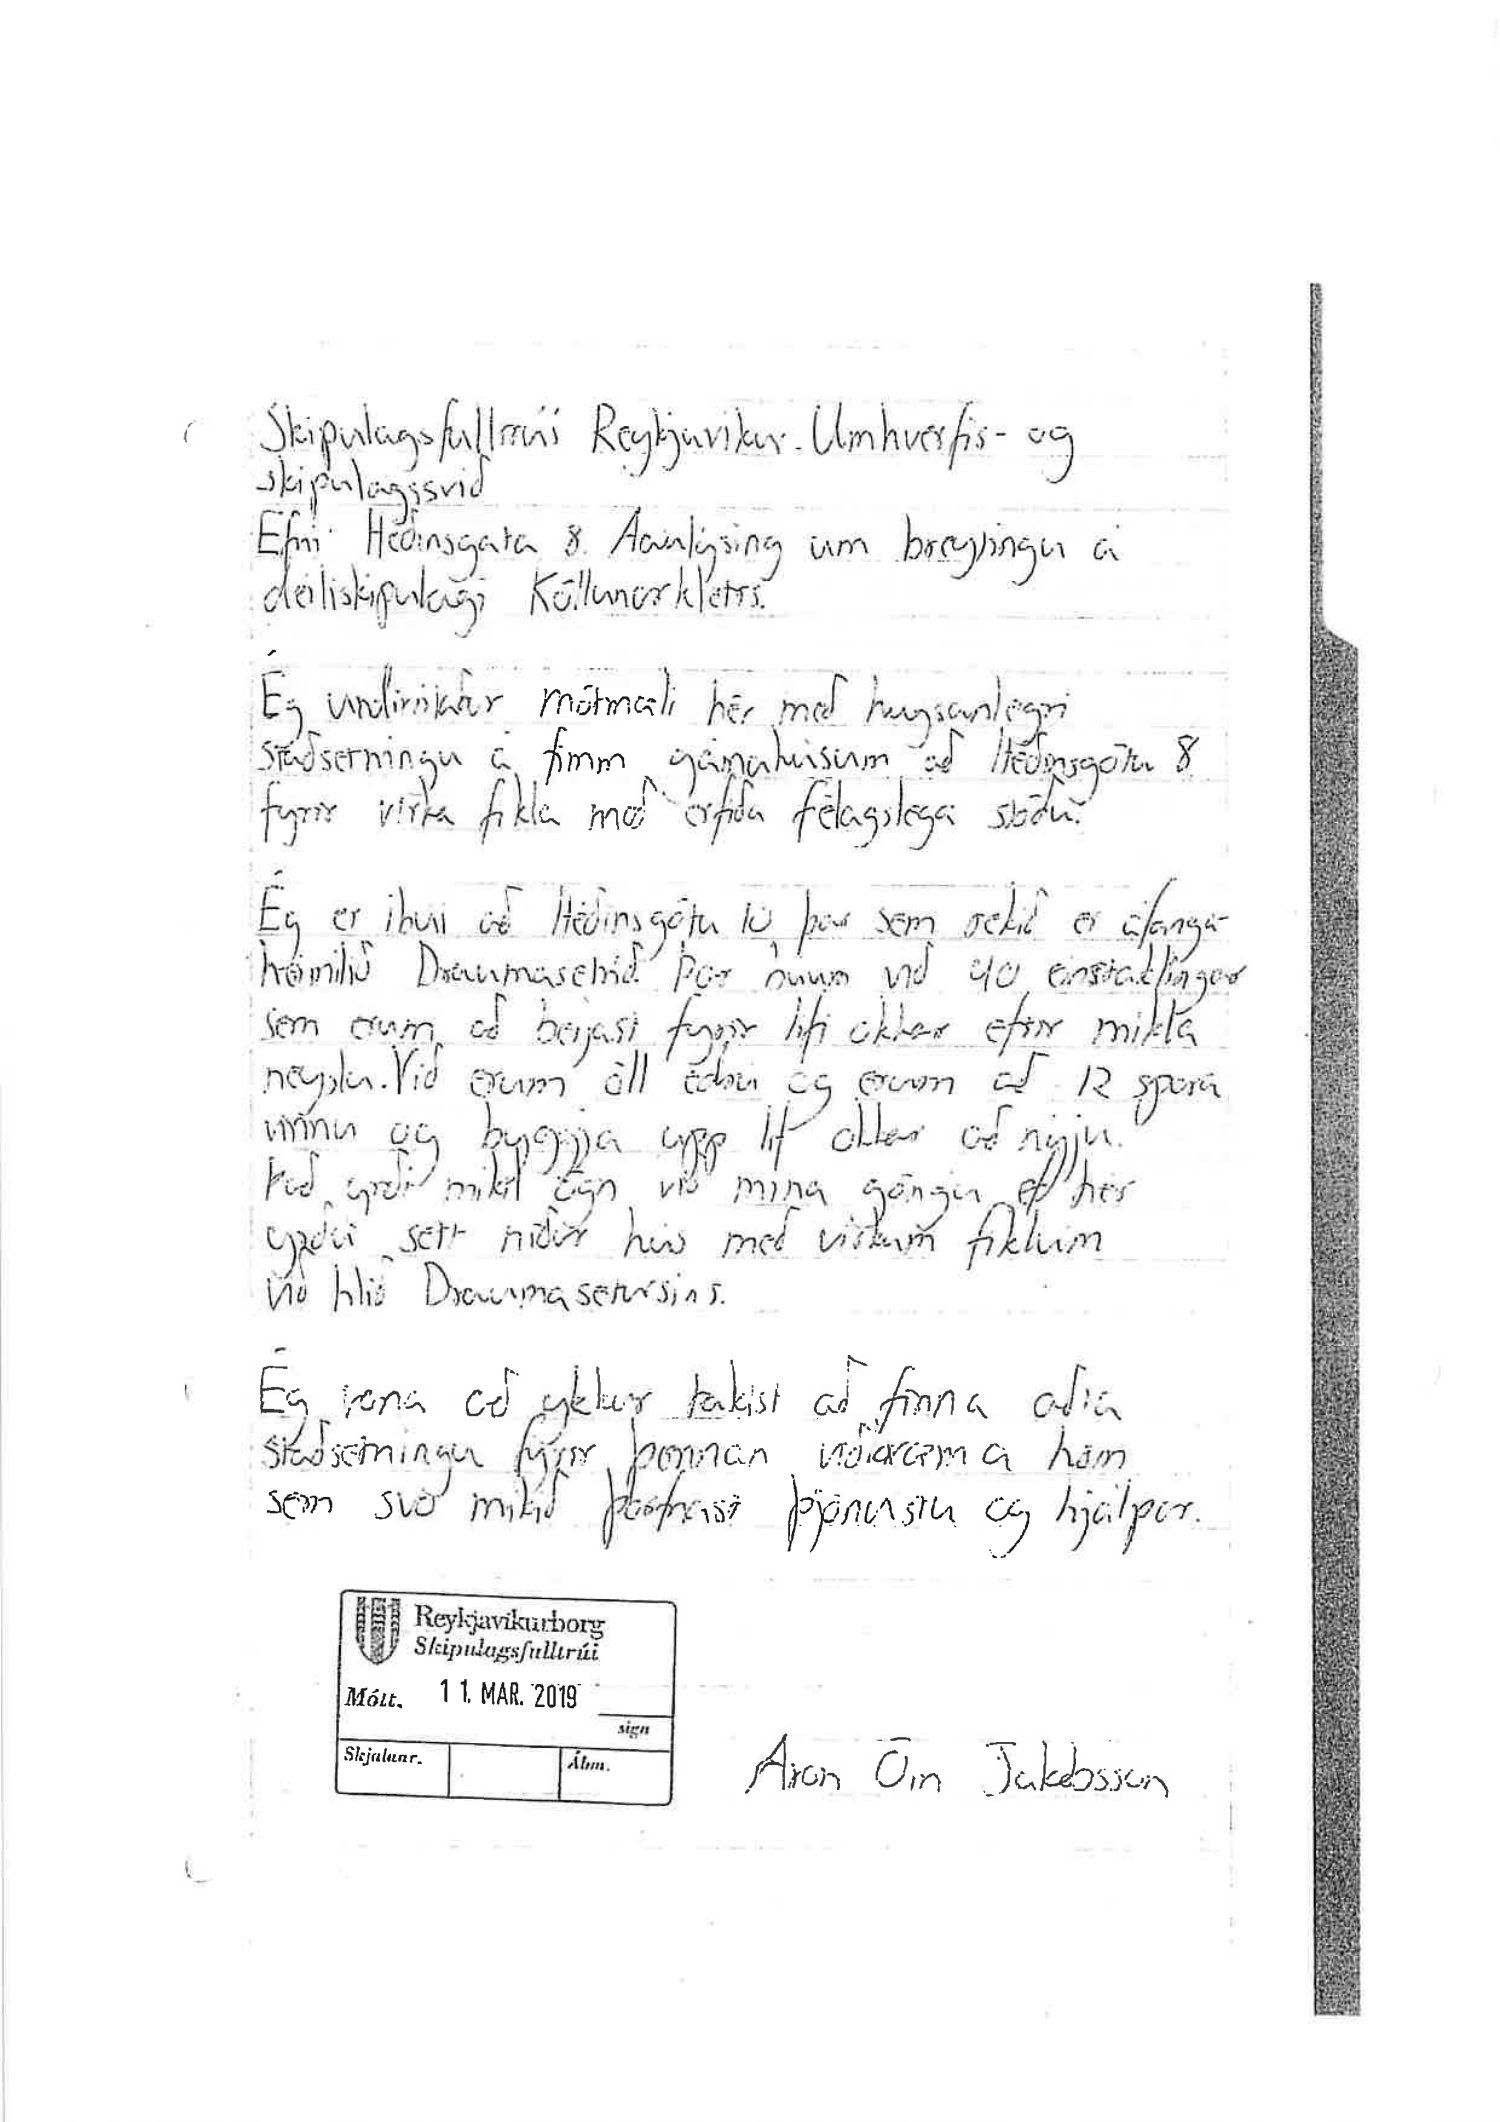 Skipulagsfulltrúi Reykjavikur. Umhverfis- og
skipulagssvið
Efni Héðinsgata 8. Aauglýsing um breytingu á
deiliskipulagi Köllunarkletts.
Ég undirritaður mótmæli hér með hugsanlegri
staðsetningu á fimm gámahúsum að Héðinsgötu 8
fyrir virka fikla með erfiða félagslega stöðu.
Ég er ibúi að Héðinsgötu 10, þar sem rekið er áfanga-
heimilið Draumasetrið. Þar búum við 40 einstaklingar
sem erum að berjast fyrir lifi okkar eftir mikla
neyslu. Við erum öll edrú og erum að 12 spora
vinnu og byggja upp lif okkar að nýju.
Það yrði mikil ógn við mina göngu ef hér
yrðu sett niður hús með virkum fiklum
við hlið Draumasetursins.
Ég vona að ykkur takist að finna aðra
staðsetningu fyrir þennan viðkvæma hóp
sem svo mikið þarfnast þjónustu og hjálpar.
Reykjavíkurborg
Skipulagsfulltrúi
Mótt. 11. MAR. 2019
sign
Skjalanr. Ábm.
Aron Örn Jakobsson